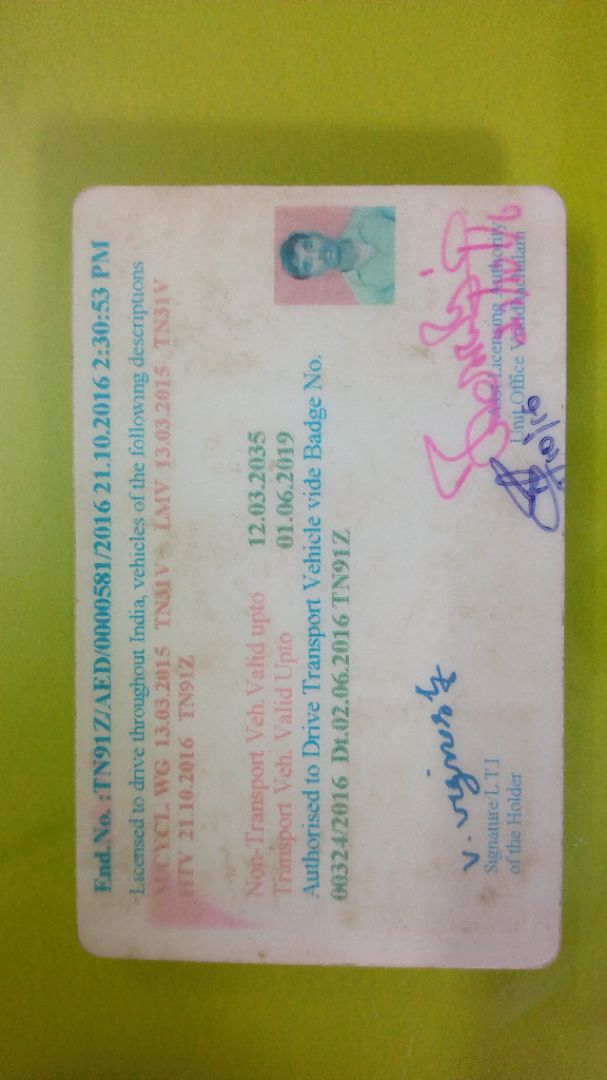 End. No. :TN91Z/AED/0000581/2016 21.10.2016 2:30:53 PM
Licensed to drive throughout India, vehicles of the following descriptions
M/CYCL. WG 13.03.2015 TN31V LMV 13.03.2015 TN31V
HTV 21.10.2016 TN91Z
Non-Transport Veh. Valid upto 12.03.2035
Transport Veh. Valid Upto 01.06.2019
Authorised to Drive Transport Vehicle vide Badge No.
00324/2016 Dt.02.06.2016 TN91Z
Signature/L.T.I
of the Holder
Licensing Authority
Unit Office